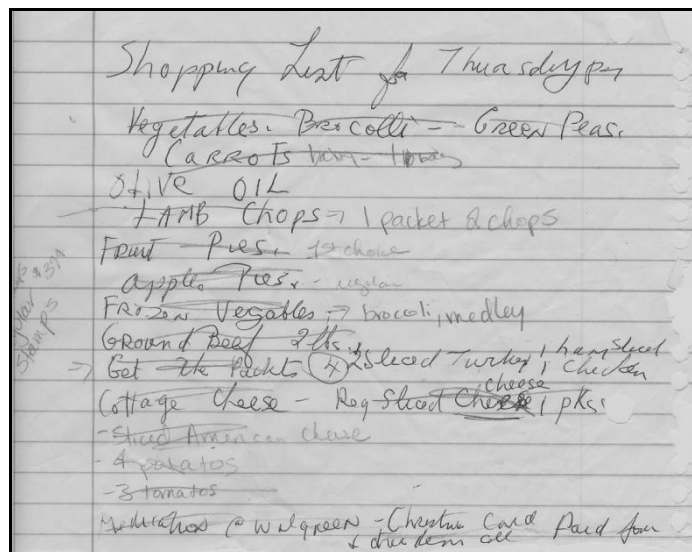 Shopping List for Thuasdypm
Vegetables. Brocolli -- Green Peas.
Carrots baby - 1 bag
Olive Oil
Lamb Chops → 1 packet 2 chops
Fruit Pies. 1st choice
apple Pies. - regular
Frozon Vegables → brocoli, medley
Ground Beef 2 lbs.
→ Get the Packts 4 2 Sliced Turkey 1 ham sliced
1 chicken
Cottage Cheese - Reg Sliced cheese 1 pks.
- Sliced American chese
- 4 potatos
- 3 tomatos
@ Walgreen - Card Paid for
stamps